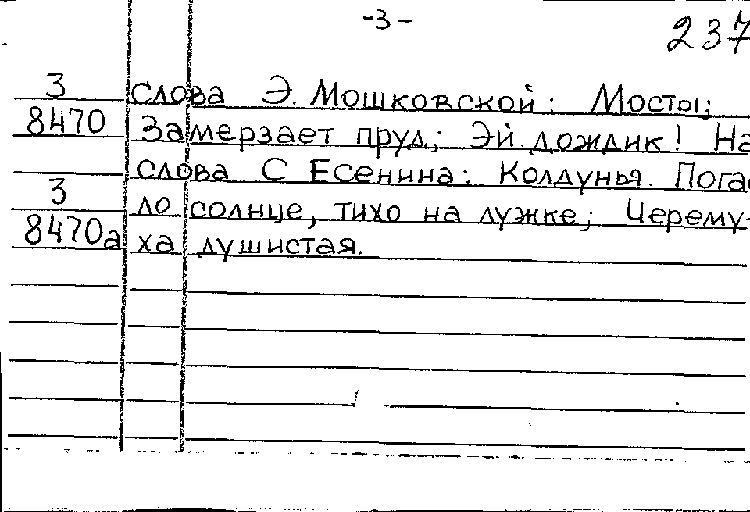 -3-
237
3 слова Э. Мошковской: Мосты;
8470 Замерзает пруд; Эй дождик! На
слова С Есенина: Колдунья. Погас
3 ло солнце, тихо на лужке; Черему-
8470а ха душистая.